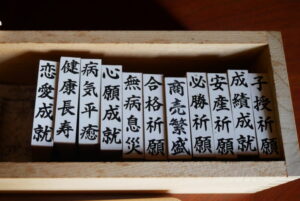 恋愛成就
健康長寿
病気平癒
心願成就
無病息災
合格祈願
商売繁盛
必勝祈願
安産祈願
成績成就
子授祈願